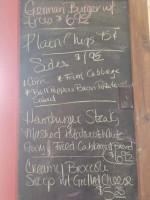 German Burger w/
Fries $6.95
Plain Chips 75¢
Sides $1.95
*Corn * Fried Cabbage
* Bell Peppers Bacon Potato
Salad
Hamburger Steak,
Mashed Potatoes w/
Gravy Fried Cabbage & Bread
$6.95
Creamy Broccoli
Soup w/ Grilled Cheese